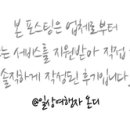 본 포스팅은 업체로부터
는 서비스를 지원받아 직접
솔직하게 작성된 후기입니다
@일상여행자 온디